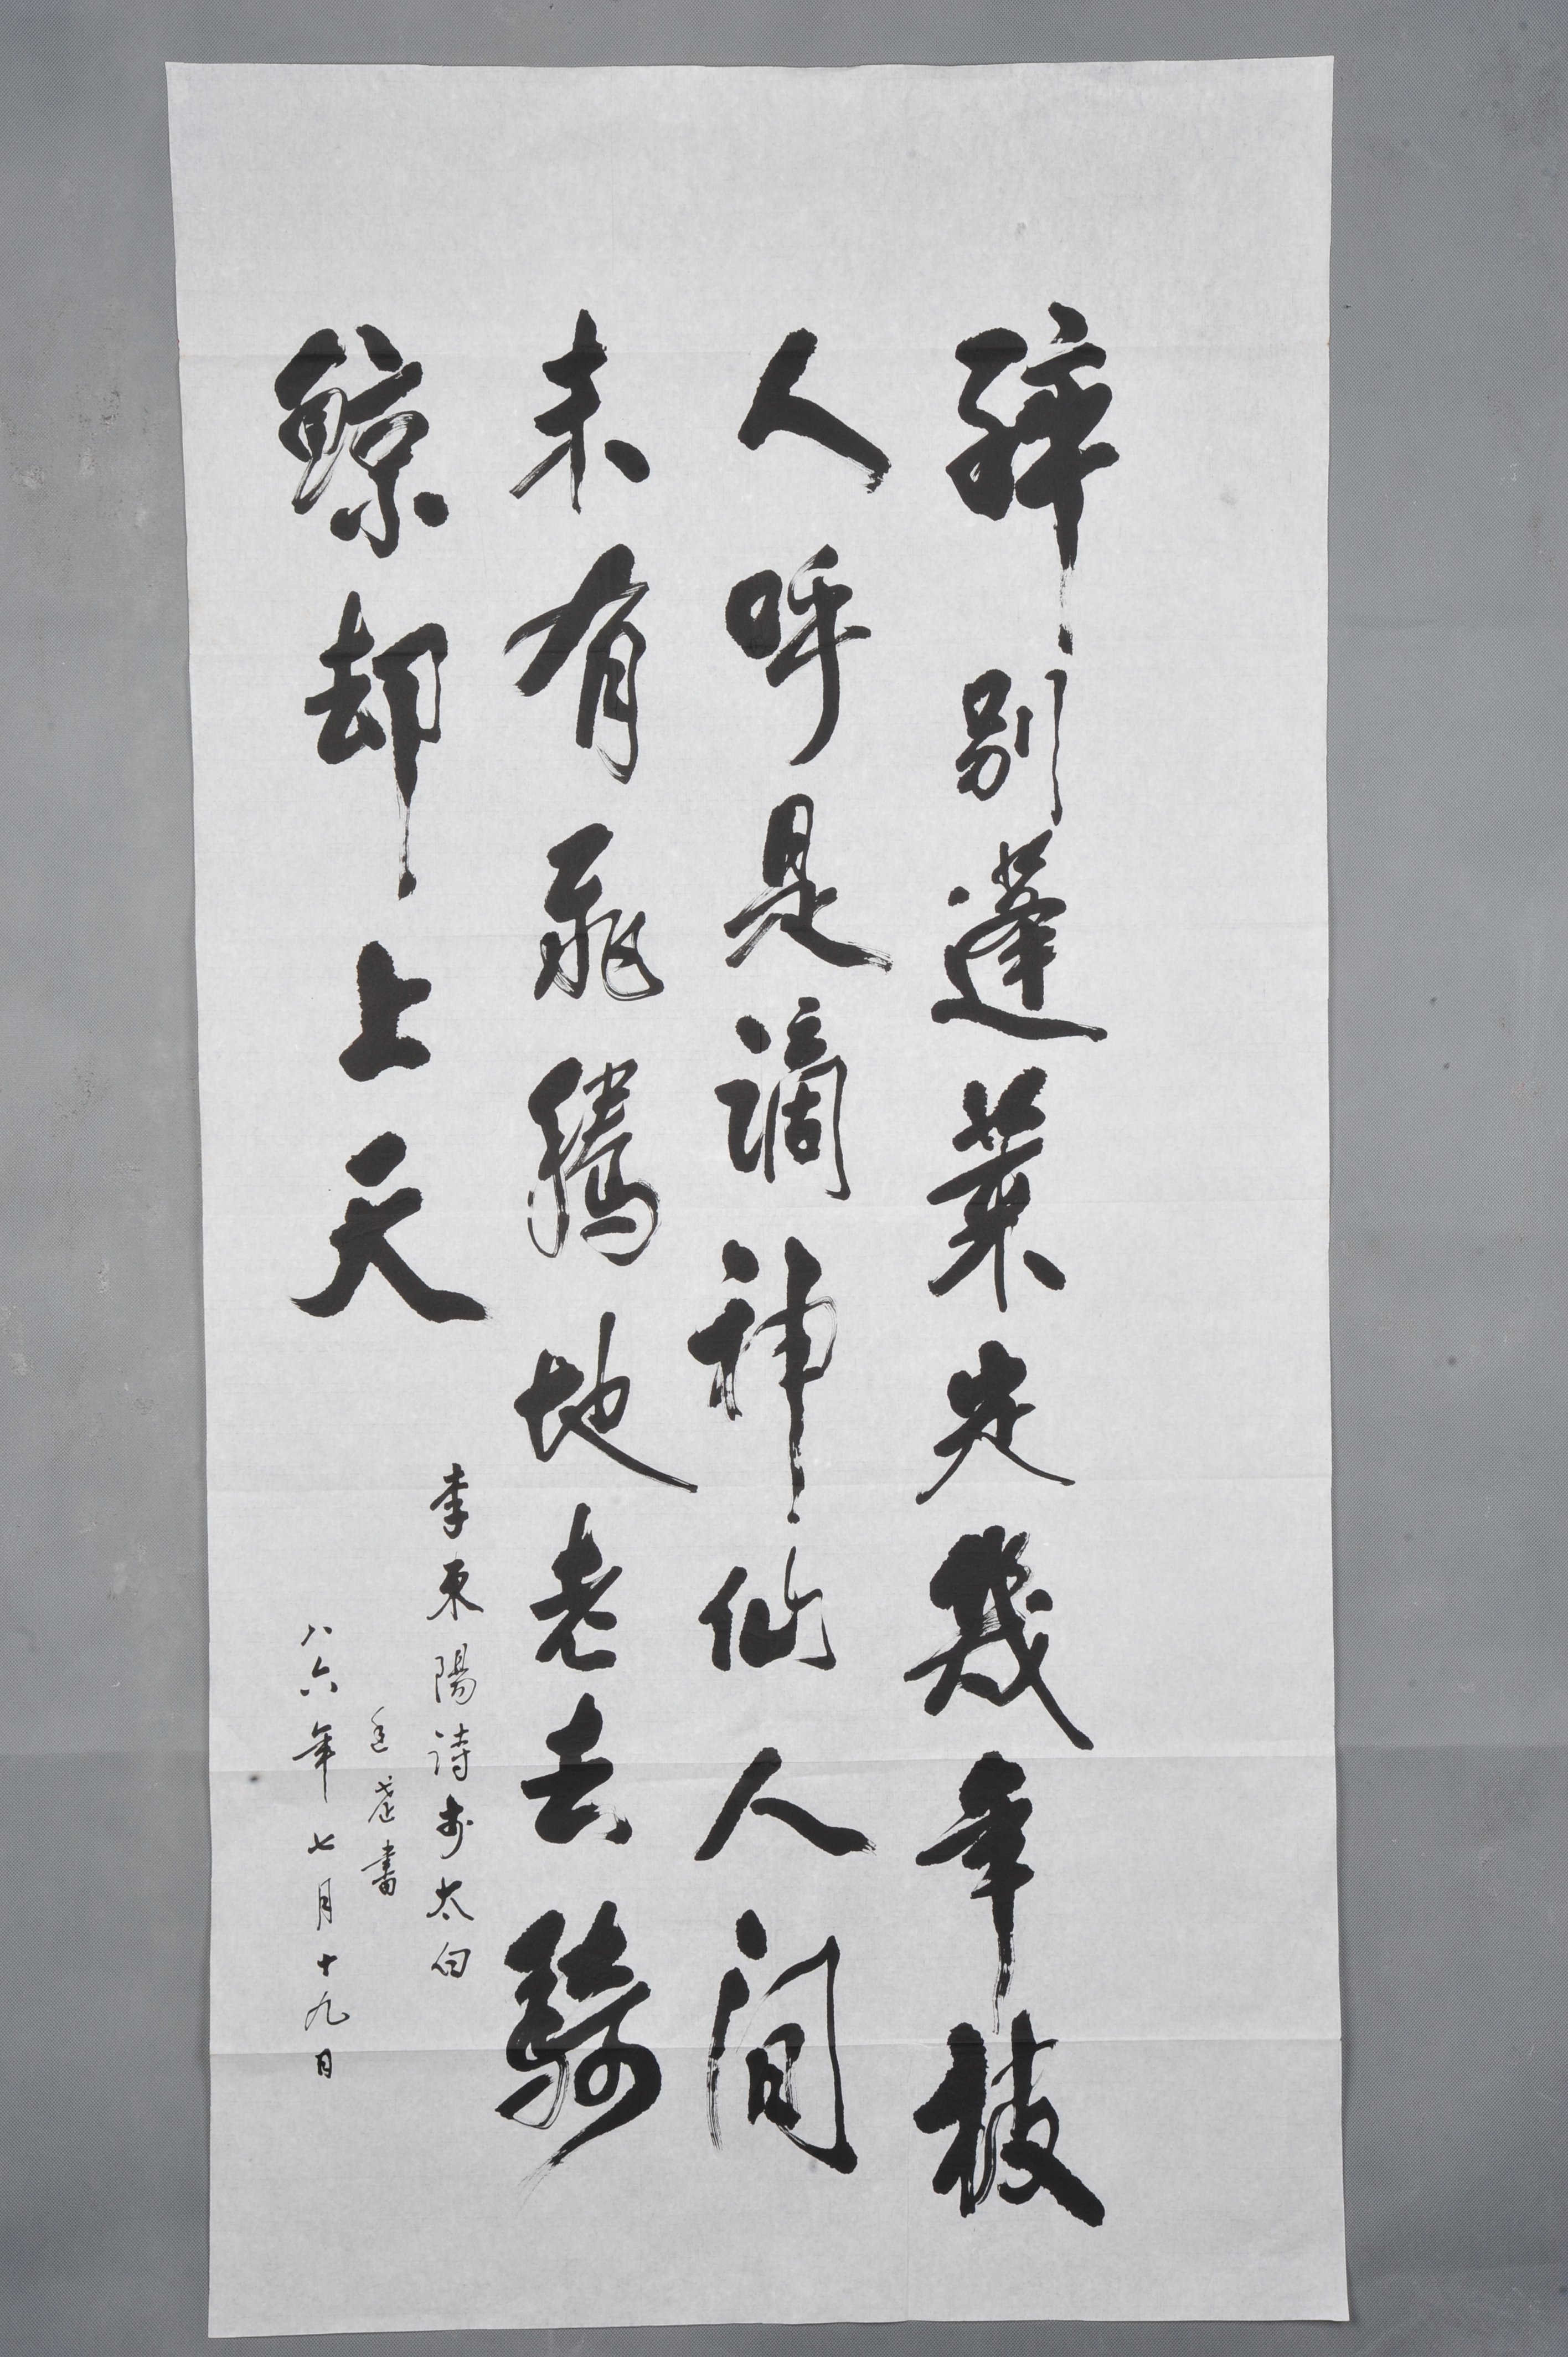 醉別蓬萊定幾年被
人呼是謫神仙人间
未有飛騰地老去騎
鯨却上天
李東陽詩太白
書
八六年七月十九日